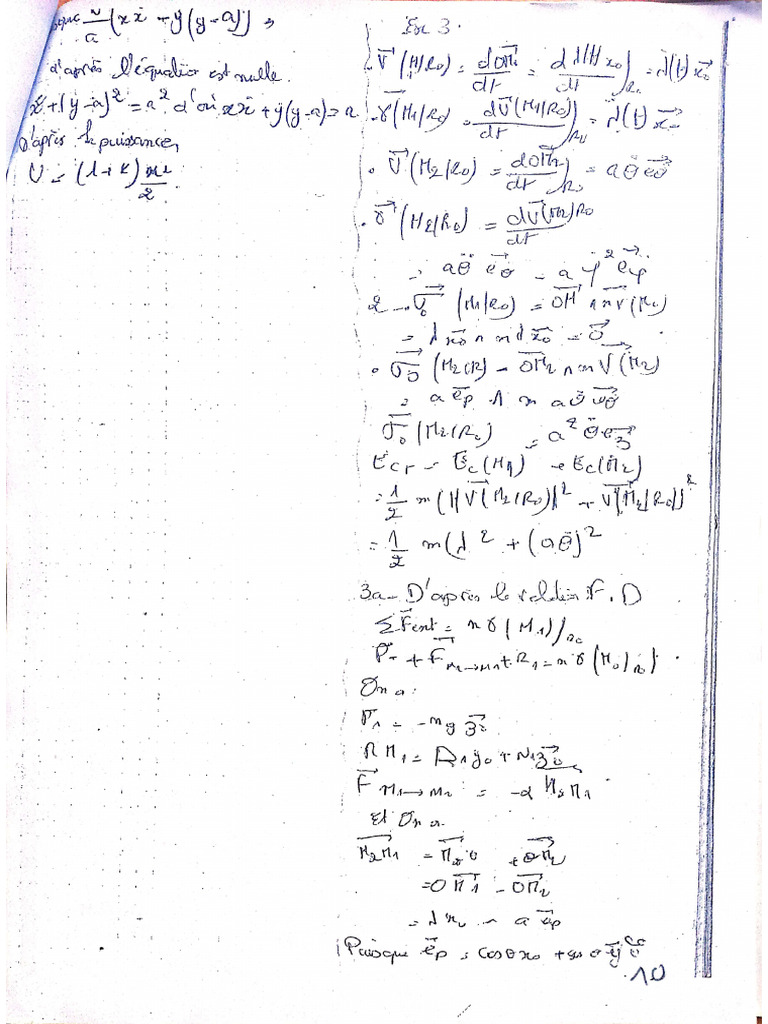 N/a (xẋ - ẏ(y-a)) ⇒
d'après l'équation est nulle.
x² + (y-a)² = a² d'où xẋ + ẏ(y-a) = 0
D'après la puissance,
U = (λ+k) x²/2
Ex 3.
. V⃗(M1/R0) = dOM⃗1/dt = dλ(t)x⃗0/dt)R0 = λ̇(t) x⃗0
. γ⃗(M1/R0) = dV⃗(M1/R0)/dt)R0 = λ̈(t) x⃗0
. V⃗(M2/R0) = dOM⃗2/dt)R0 = a θ̇ e⃗θ
. γ⃗(M2/R0) = dV⃗(M2)/R0/dt
= a θ̈ e⃗θ - a φ̇² e⃗φ
2 - σ⃗0 (M1/R0) = OM⃗ ∧ m V⃗(M1)
= λ x⃗0 ∧ m λ̇ x⃗0 = 0⃗
. σ⃗0 (M2/R) = OM⃗2 ∧ m V⃗(M2)
= a e⃗ρ ∧ m a θ̇ e⃗θ
σ⃗0 (M2/R0) = a² θ̇ e⃗z
Ecr = Ec(M1) + Ec(M2)
= 1/2 m (||V⃗(M2/R0)||² + V⃗(M2/R0))²
= 1/2 m (λ̇² + (aθ̇)²
3a - D'après la relation F.D
Σ F⃗ext = m γ(M1)/R0
P⃗ + F⃗M2→M1 + R1 = m γ(M0/R0)
On a:
P⃗1 = -mg z⃗0
R M1 = R1 y0 + N1 z⃗0
F⃗ M1→M2 = -α M2M1
Et On a
M2M1 = M⃗2 O + OM⃗2
= OM⃗1 - OM⃗2
= λ x0 - a e⃗ρ
Puisque e⃗ρ = cosθ x0 + sin θ y⃗0
10